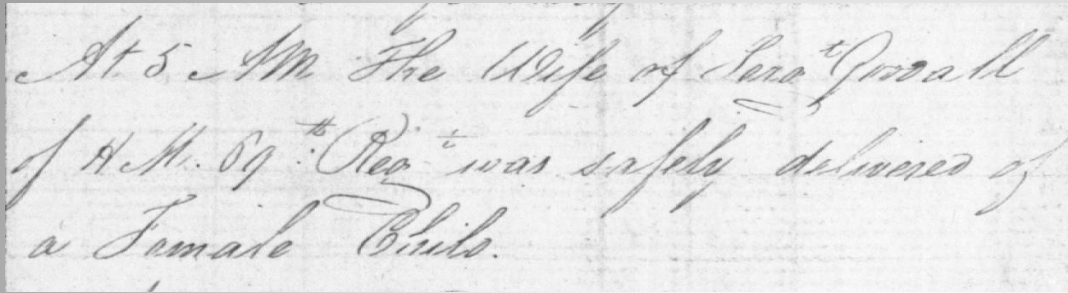 At 5 AM The Wife of Sergt
of H M. 69th Regt was safely delivered of
a Female Child.